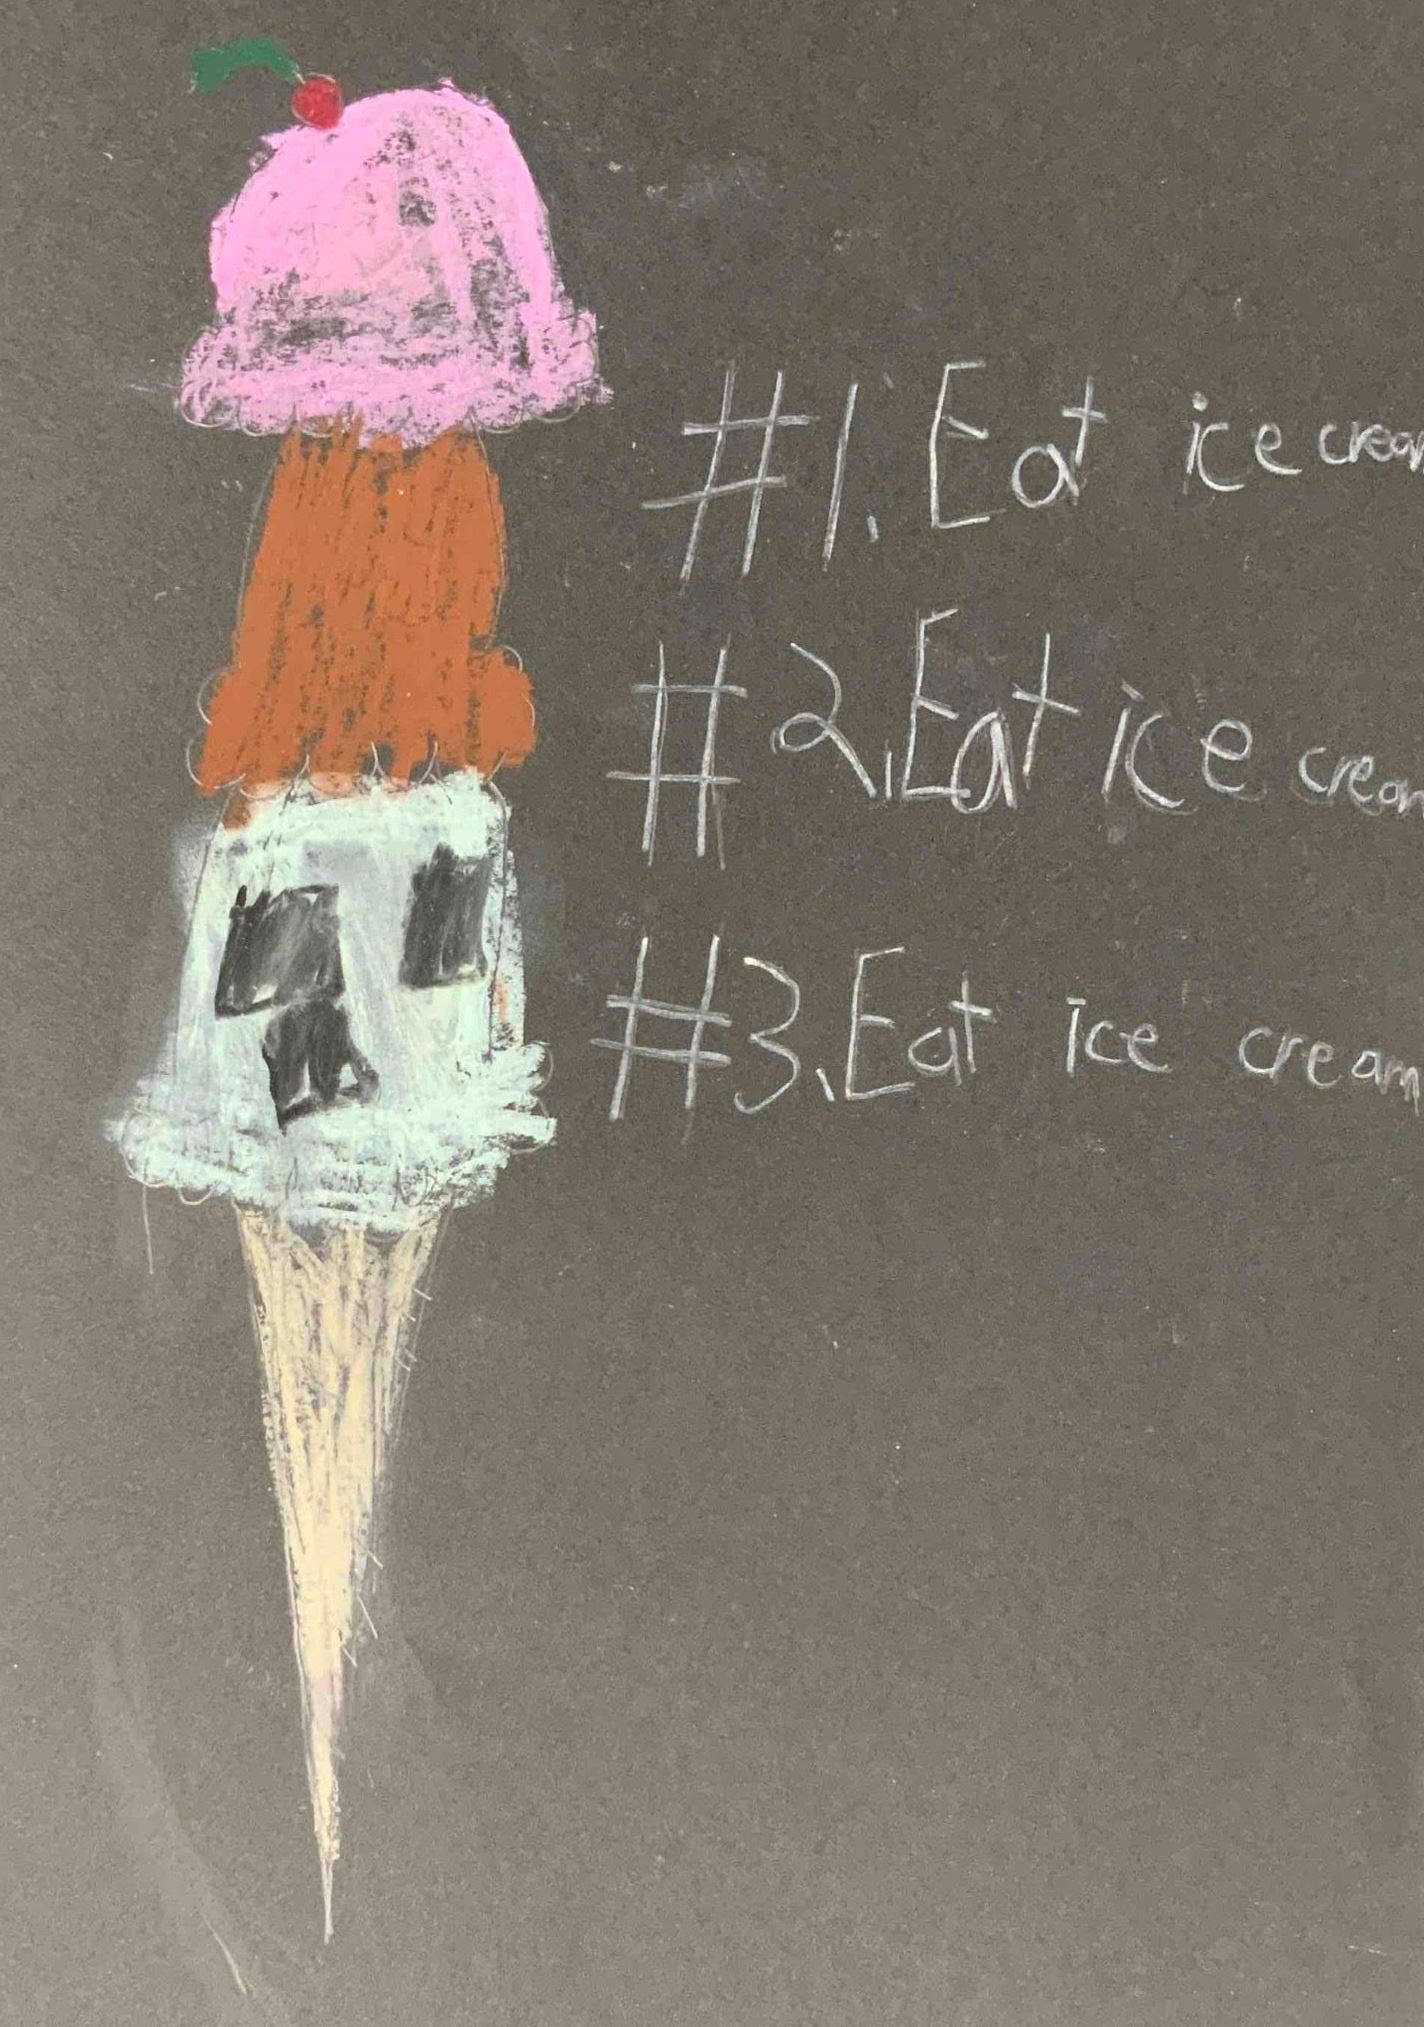 #1. Eat ice crea
#2. Eat ice crea
#3. Eat ice cream